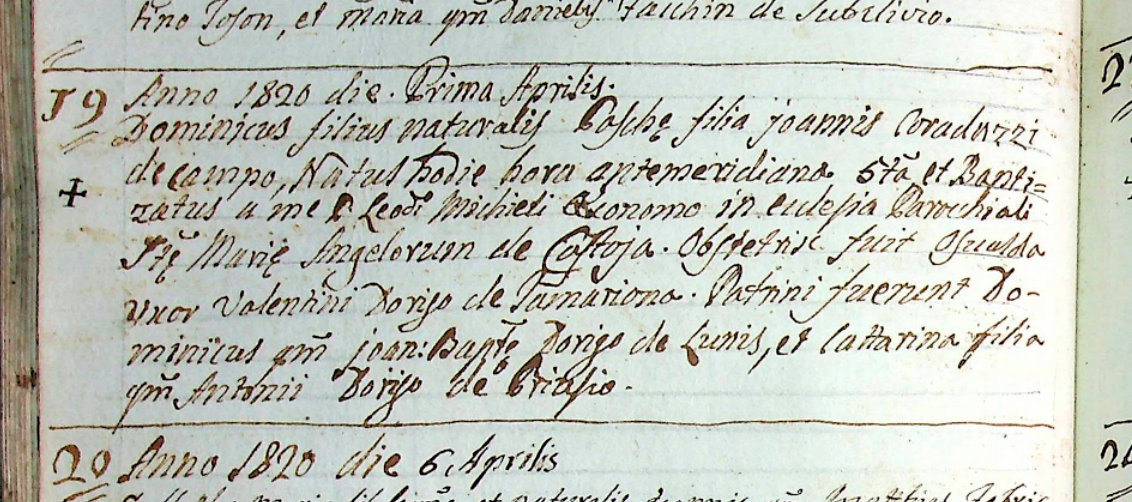 tino Toson, et maria qm Danielis Facchin de Subclivio.
19 Anno 1820 die. Prima Aprilis.
Dominicus filius naturalis Poschę filia joannis Coradazzi
de campo, Natus hodie hora antemeridiana 5ta et Bapti=
zatus a me P. Leodo Michieli Œconomo in eclesia Parochiali
Stę Marię Angelorum de Castoja. Obstetrix fuit Osualda
uxor Valentini Dorigo de Tamariona. Patrini fuerunt Do-
minicus qm joan: Baptę Dorigo de Lunis, et Cattarina filia
qm Antonii Dorigo de
20 Anno 1820 die 6 Aprilis
et naturalis